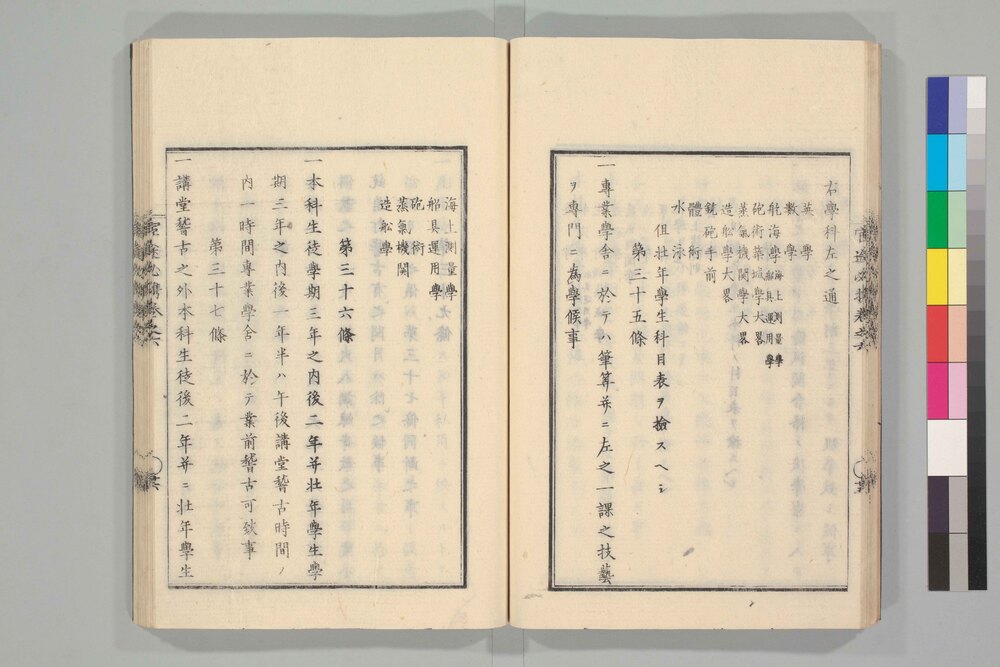 右學科左之通
英學
數學
航海學 海上測量學 船具運用學
砲術築城學大畧
蒸氣機関學大畧
造舩學大畧
銃砲手前
體術
水泳
但壮年學生科目表ヲ撿スヘシ
第三十五條
一專業學舎ニ於テハ筆算并ニ左之一課之技藝
ヲ專門ニ為學候事
海上測量學
船具運用學
砲術
蒸氣機関
造舩學
第三十六條
一本科生徒學期三年之内後二年并壮年學生學
期三年之内後一年半ハ午後講堂稽古時間ノ
内一時間專業學舎ニ於テ業前稽古可致事
第三十七條
一講堂稽古之外本科生徒後二年并ニ壮年學生